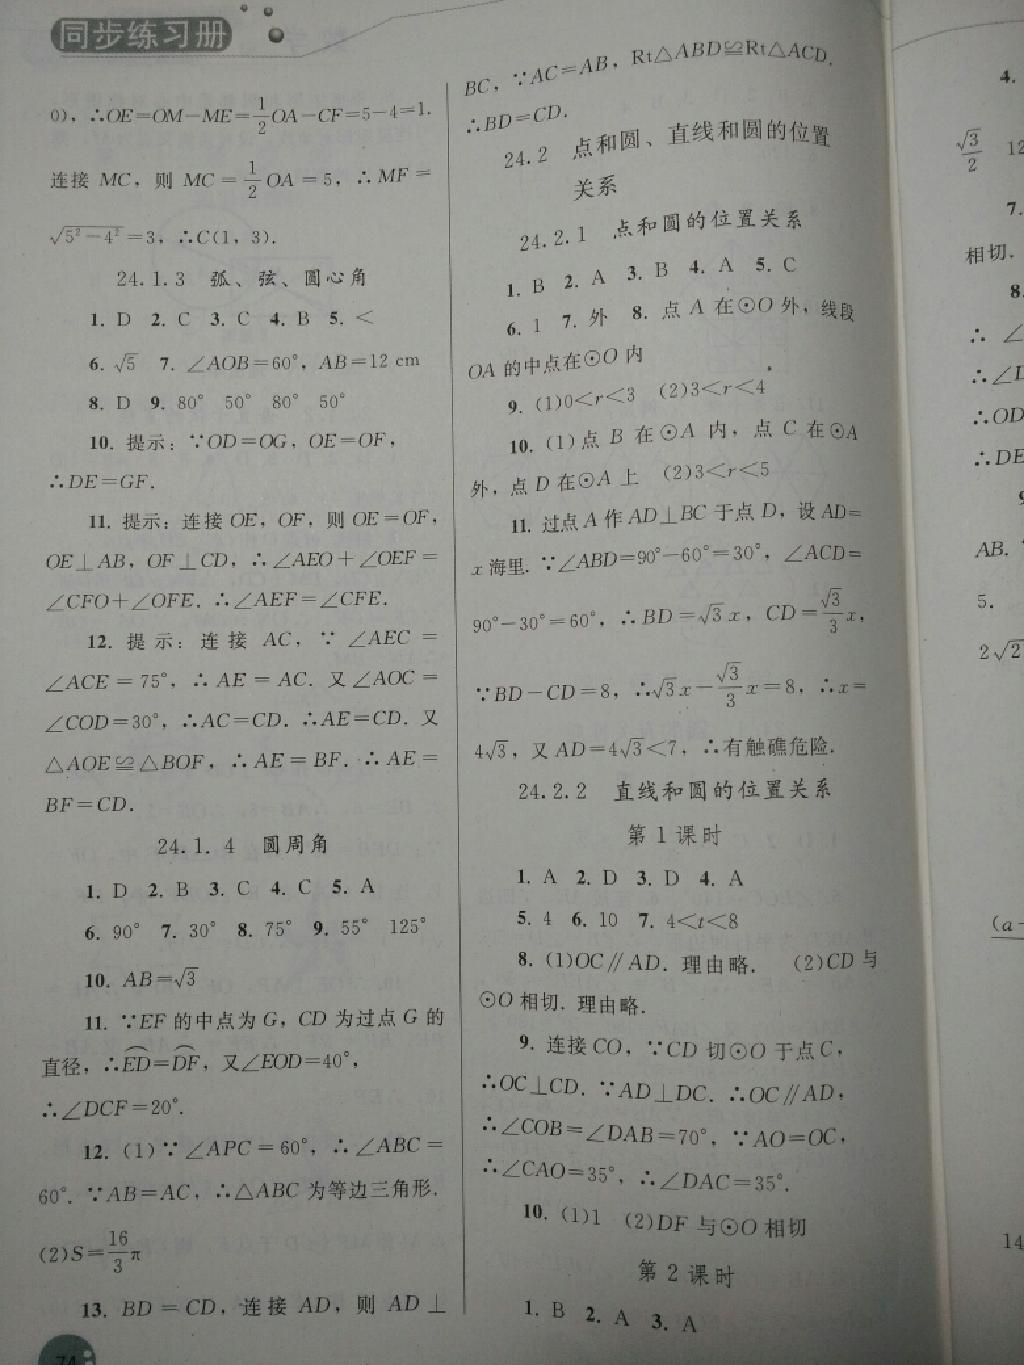 同步练习册
0)，∴OE=OM-ME=1/2OA-CF=5-4=1.
连接 MC，则 MC=1/2OA=5，∴MF=
√(5²-4²)=3，∴C(1，3).
24.1.3 弧、弦、圆心角
1. D 2. C 3. C 4. B 5. <
6. √5 7. ∠AOB=60°，AB=12 cm
8. D 9. 80° 50° 80° 50°
10. 提示：∵OD=OG，OE=OF，
∴DE=GF.
11. 提示：连接 OE，OF，则 OE=OF，
OE⊥AB，OF⊥CD，∴∠AEO+∠OEF=
∠CFO+∠OFE. ∴∠AEF=∠CFE.
12. 提示：连接 AC，∵∠AEC=
∠ACE=75°，∴AE=AC. 又∠AOC=
∠COD=30°，∴AC=CD. ∴AE=CD. 又
△AOE≌△BOF，∴AE=BF. ∴AE=
BF=CD.
24.1.4 圆周角
1. D 2. B 3. C 4. C 5. A
6. 90° 7. 30° 8. 75° 9. 55° 125°
10. AB=√3
11. ∵EF 的中点为 G，CD 为过点 G 的
直径，∴⌒ED=⌒DF，又∠EOD=40°，
∴∠DCF=20°.
12. (1)∵∠APC=60°，∴∠ABC=
60°. ∵AB=AC，∴△ABC 为等边三角形.
(2)S=16/3π
13. BD=CD，连接 AD，则 AD⊥
74
BC，∵AC=AB，Rt△ABD≌Rt△ACD.
∴BD=CD.
24.2 点和圆、直线和圆的位置
关系
24.2.1 点和圆的位置关系
1. B 2. A 3. B 4. A 5. C
6. 1 7. 外 8. 点 A 在⊙O 外，线段
OA 的中点在⊙O 内
9. (1)0<r<3 (2)3<r<4
10. (1)点 B 在⊙A 内，点 C 在⊙A
外，点 D 在⊙A 上 (2)3<r<5
11. 过点 A 作 AD⊥BC 于点 D，设 AD=
x 海里. ∵∠ABD=90°-60°=30°，∠ACD=
90°-30°=60°，∴BD=√3x，CD=√3/3x，
∵BD-CD=8，∴√3x-√3/3x=8，∴x=
4√3，又 AD=4√3<7，∴有触礁危险.
24.2.2 直线和圆的位置关系
第 1 课时
1. A 2. D 3. D 4. A
5. 4 6. 10 7. 4<t<8
8. (1)OC∥AD. 理由略. (2)CD 与
⊙O 相切. 理由略.
9. 连接 CO，∵CD 切⊙O 于点 C，
∴OC⊥CD. ∵AD⊥DC. ∴OC∥AD，
∴∠COB=∠DAB=70°，∵AO=OC，
∴∠CAO=35°，∴∠DAC=35°.
10. (1)1 (2)DF 与⊙O 相切
第 2 课时
1. B 2. A 3. A
4.
√3/2 12
7.
相切.
8.
∴∠
∴∠D
∴OD
∴DE
AB.
5.
2√2
(a-
14